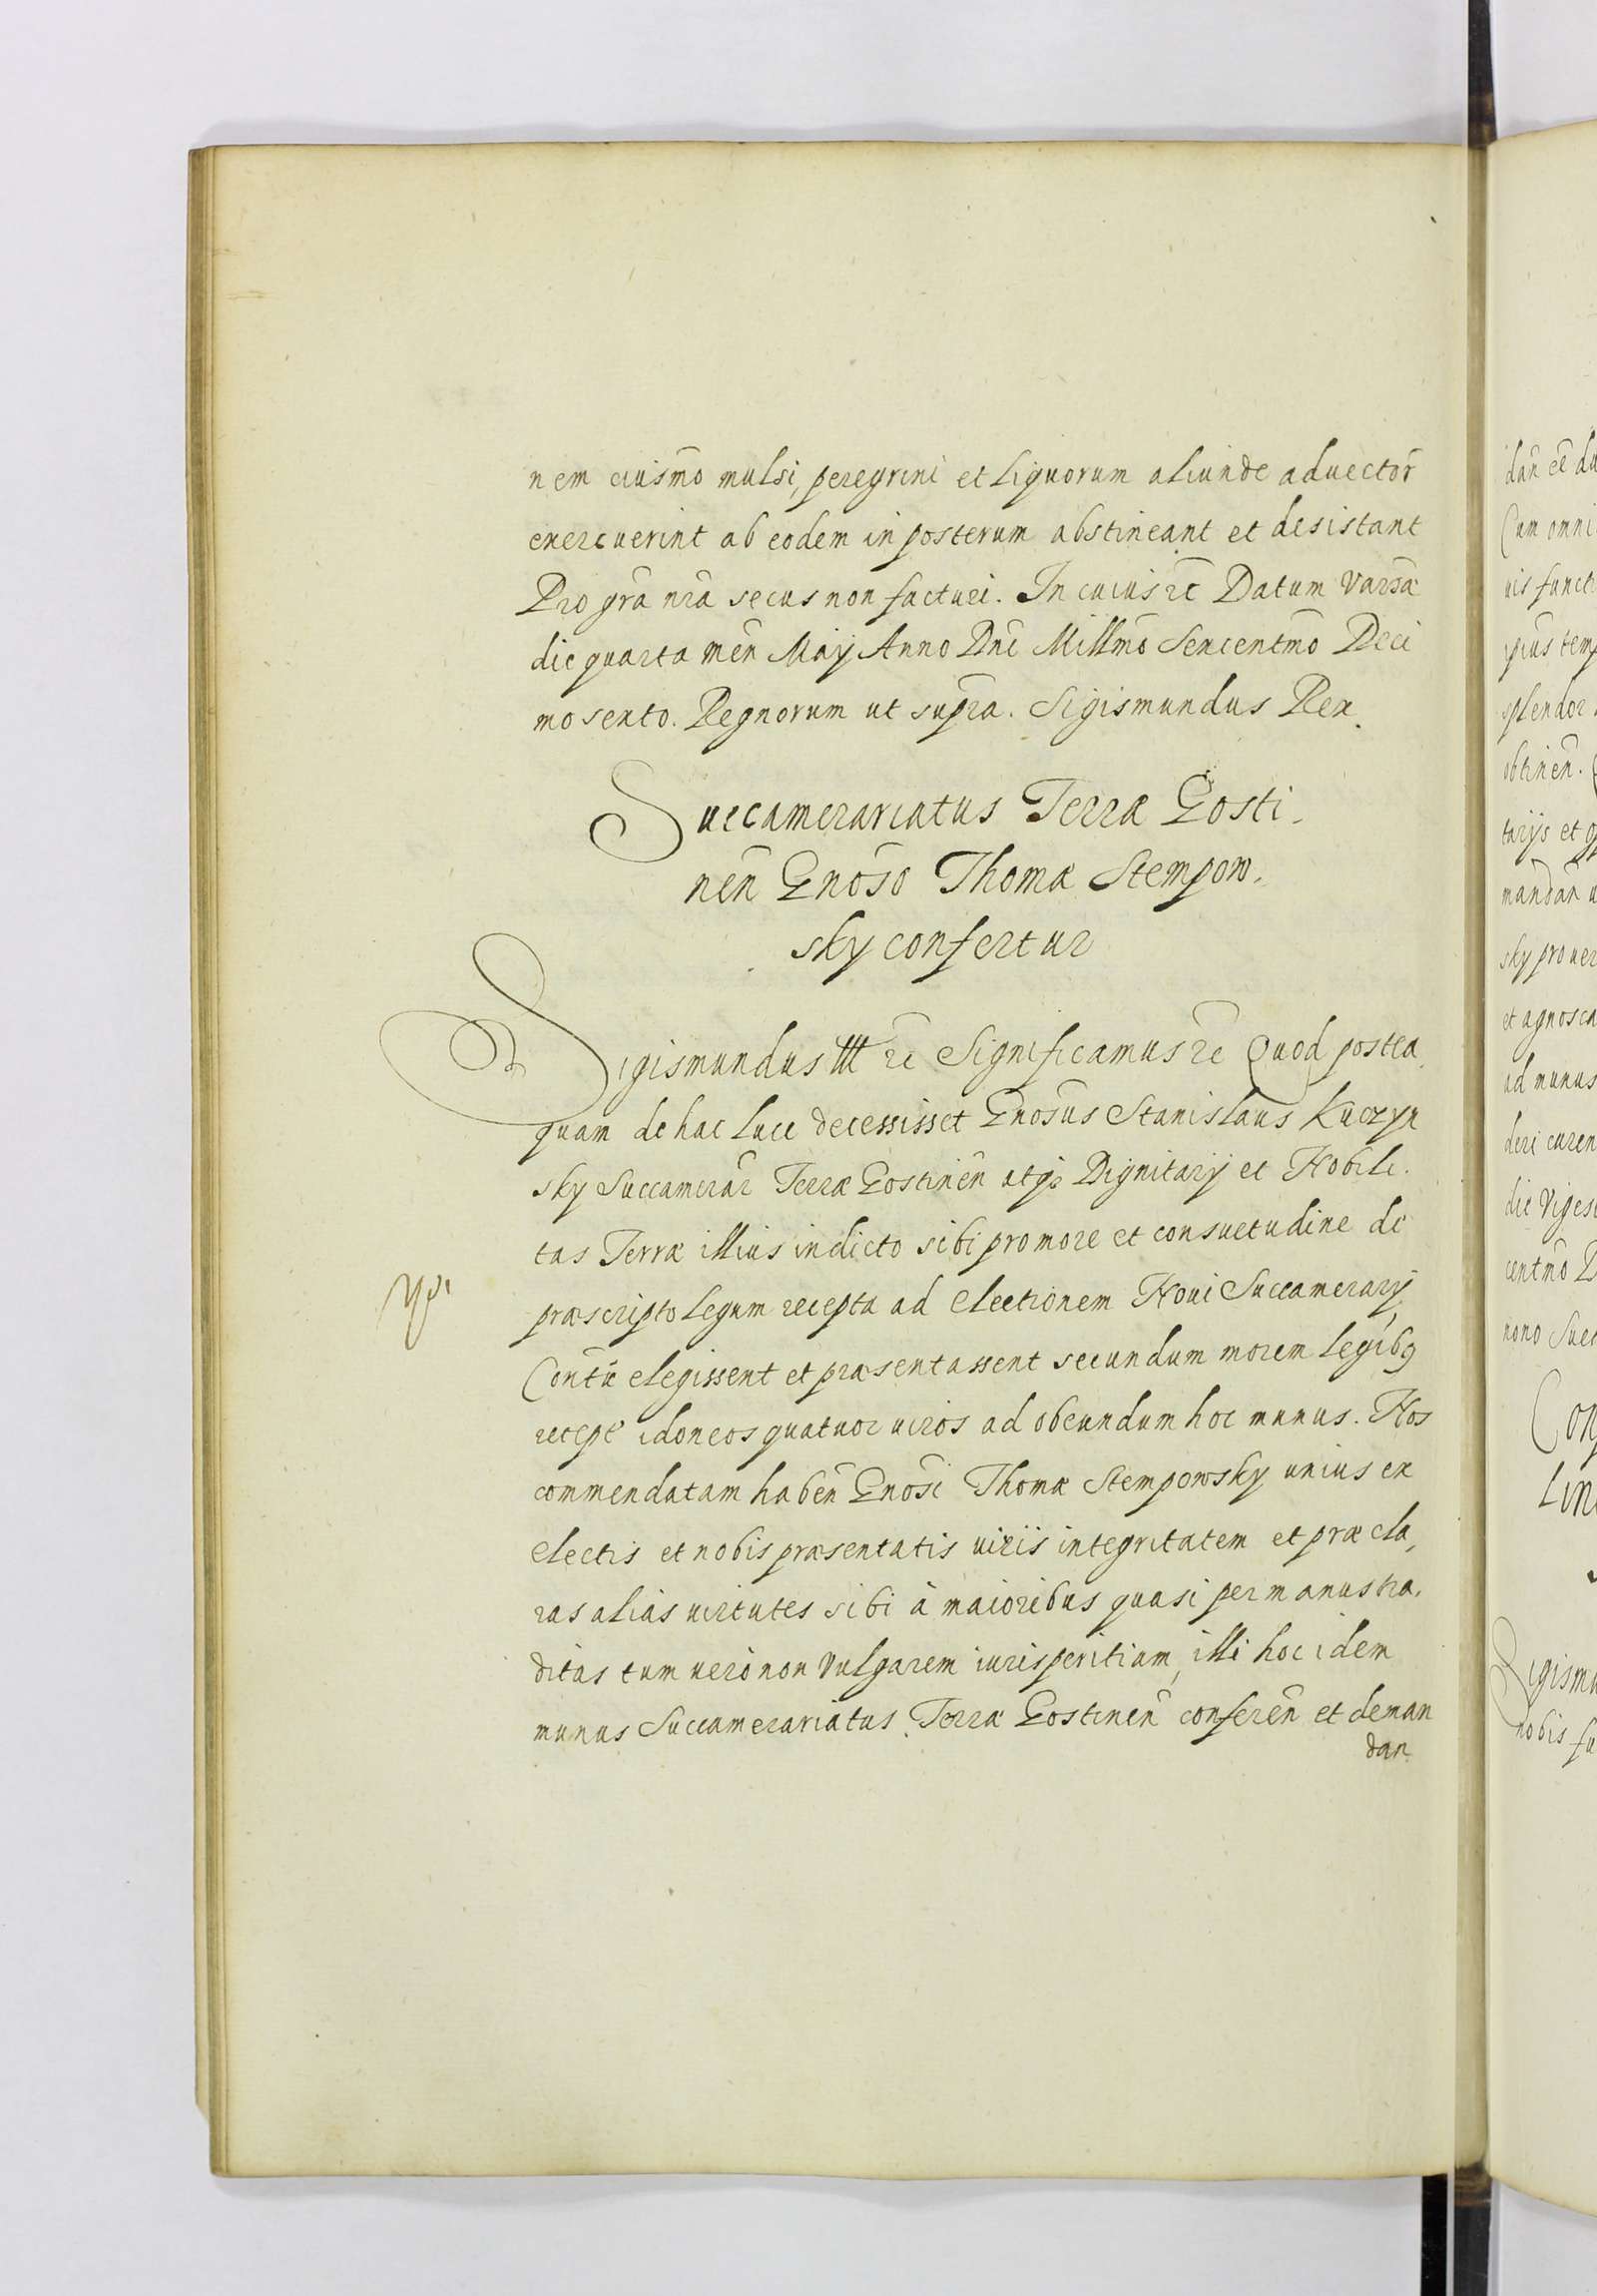 nem eiusmo mulsi, peregrini et liquorum aliunde aduector
exercuerint ab eodem in posterum abstineant et desistant
Pro gra nra secus non facturi. In cuius rc Datum Varsa
die quarta men May Anno Dni Millmo Sexcentmo Deci
mo sexto. Regnorum ut supra. Sigismundus Rex.
Succamerariatus Terræ Gosti-
nen Gnoso Thomæ Stempow-
sky confertur
Sigismundus III rc Significamus rc Quod postea
quam de hac luce decessisset Gnosus Stanislaus Kuczyn
sky Succamerar Terræ Gostinen atq Dignitarij et Nobili-
tas Terræ illius indicto sibi pro more et consuetudine de
præscripto legum recepta ad electionem Noui Succamerarij
Contu elegissent et præsentassent secundum morem legibq
recept idoneos quatuor uiros ad obeundum hoc munus. Nos
commendatam haben Gnosi Thomæ Stempowsky unius ex
electis et nobis præsentatis uiriis integritatem et præcla,
ras alias uirtutes sibi à maioribus quasi per manus tra-
ditas tum uero non Vulgarem iuris peritiam, illi hoc idem
munus Succamerariatus Terræ Gostinen conferen et deman
dan
dan ee du
Cum omni
uis functi
splendor
obtinen.
tarijs et
mandan
sky pro uer
et agnosca
ad munus
die Viges
centmo D
nono Suec
Con
Lin
Sigismu
nobis fu